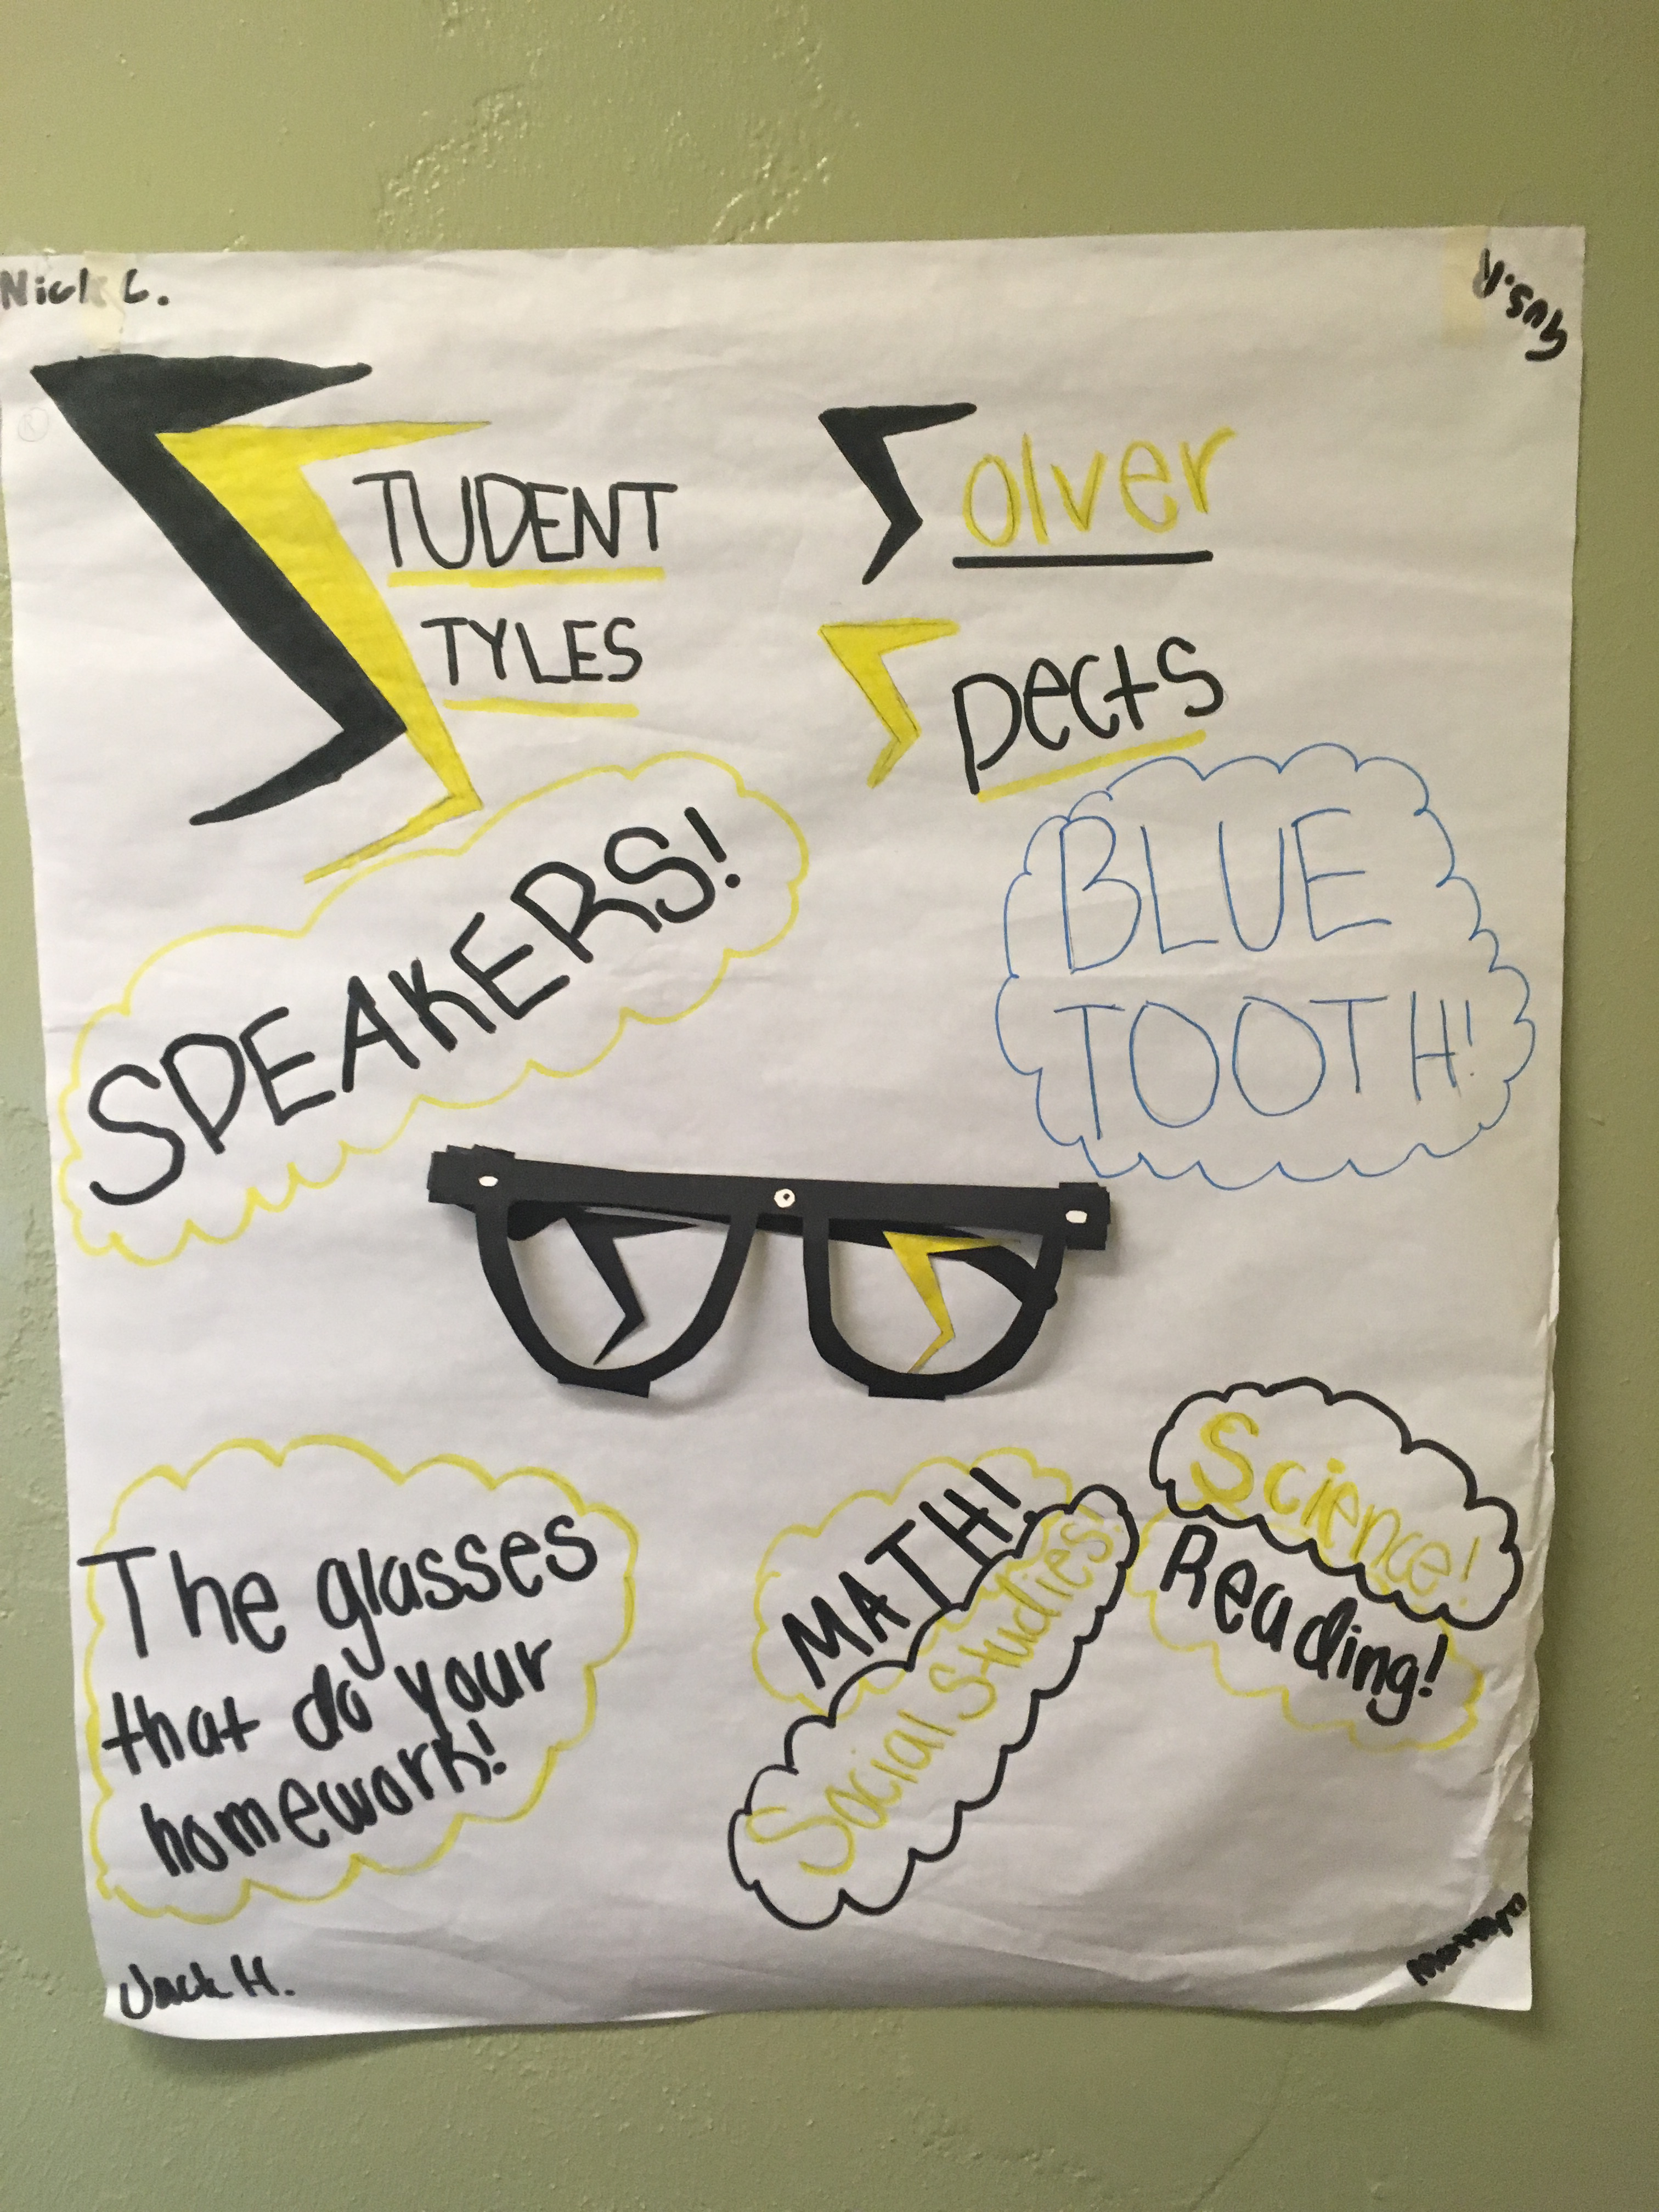 Nick C.
Gus.R
STUDENT
STYLES
Solver
Spects
SPEAKERS!
BLUE
TOOTH!
The glasses
that do your
homework!
MATH!
Social Studies!
Science!
Reading!
Jack H.